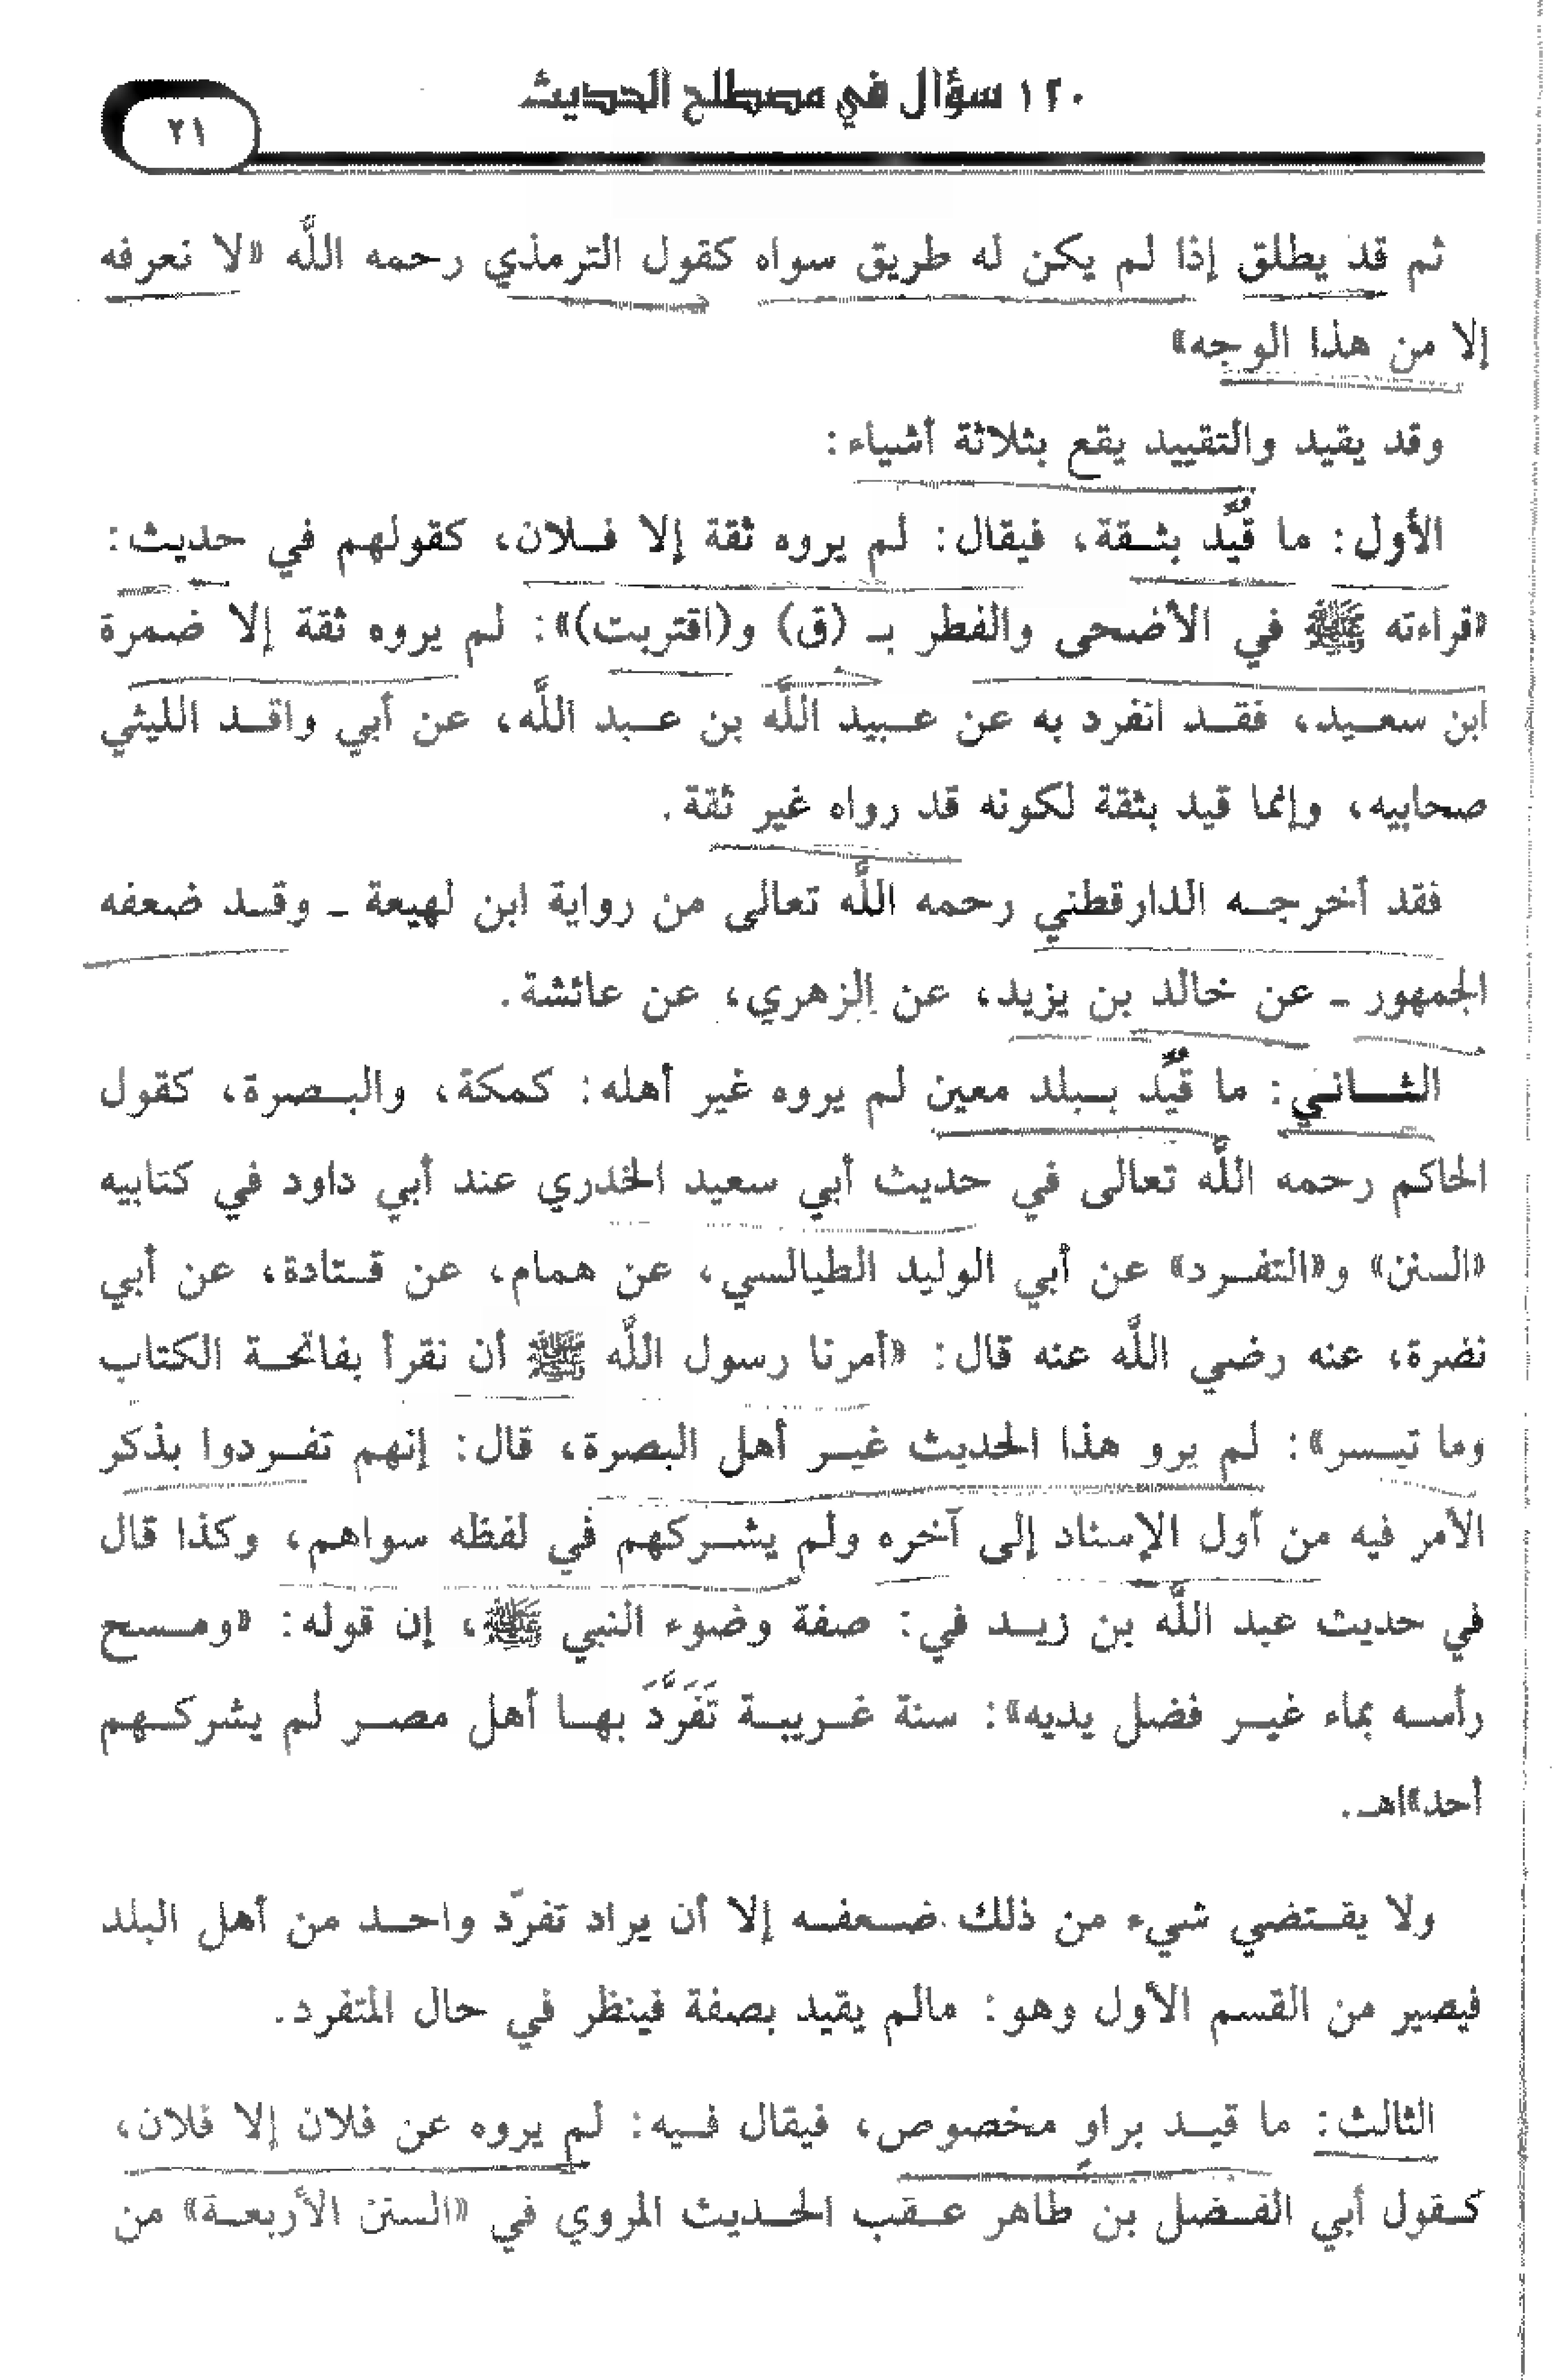 ١٢٠ سؤال في مصطلح الحديث
٢١
ثم قد يطلق إذا لم يكن له طريق سواه كقول الترمذي رحمه اللَّه «لا نعرفه
إلا من هذا الوجه»
وقد يقيد والتقييد يقع بثلاثة أشياء:
الأول: ما قُيِّد بثقة، فيقال: لم يروه ثقة إلا فلان، كقولهم في حديث:
«قراءته ﷺ في الأضحى والفطر بـ (ق) و(اقتربت)»: لم يروه ثقة إلا ضمرة
ابن سعيد، فقد انفرد به عن عبيد اللَّه بن عبد اللَّه، عن أبي واقد الليثي
صحابيه، وإنما قيد بثقة لكونه قد رواه غير ثقة.
فقد أخرجه الدارقطني رحمه اللَّه تعالى من رواية ابن لهيعة ـ وقد ضعفه
الجمهور ـ عن خالد بن يزيد، عن الزهري، عن عائشة.
الثاني: ما قُيِّد ببلد معين لم يروه غير أهله: كمكة، والبصرة، كقول
الحاكم رحمه اللَّه تعالى في حديث أبي سعيد الخدري عند أبي داود في كتابيه
«السنن» و«التفرد» عن أبي الوليد الطيالسي، عن همام، عن قتادة، عن أبي
نضرة، عنه رضي اللَّه عنه قال: «أمرنا رسول اللَّه ﷺ أن نقرأ بفاتحة الكتاب
وما تيسر»: لم يرو هذا الحديث غير أهل البصرة، قال: إنهم تفردوا بذكر
الأمر فيه من أول الإسناد إلى آخره ولم يشركهم في لفظه سواهم، وكذا قال
في حديث عبد اللَّه بن زيد في: صفة وضوء النبي ﷺ، إن قوله: «ومسح
رأسه بماء غير فضل يديه»: سنة غريبة تَفَرَّدَ بها أهل مصر لم يشركهم
أحد»اهـ.
ولا يقتضي شيء من ذلك ضعفه إلا أن يراد تفرّد واحد من أهل البلد
فيصير من القسم الأول وهو: مالم يقيد بصفة فينظر في حال المتفرد.
الثالث: ما قيد براوٍ مخصوص، فيقال فيه: لم يروه عن فلان إلا فلان،
كقول أبي الفضل بن طاهر عقب الحديث المروي في «السنن الأربعة» من